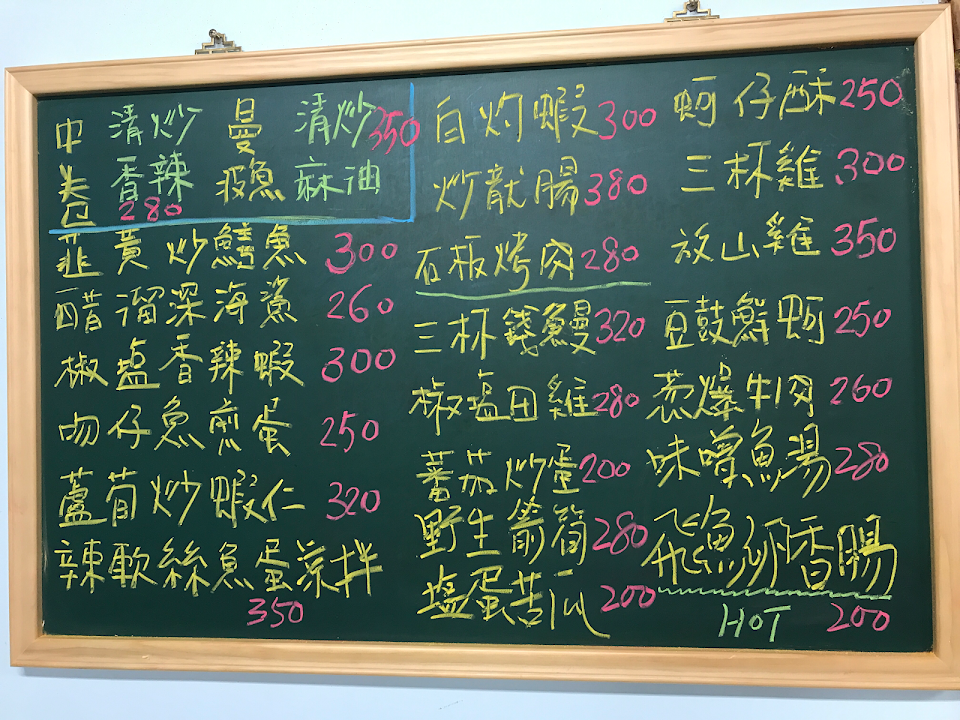 中卷 清炒 香辣 280
曼波魚 清炒 麻油 350
韮黃炒鱔魚 300
醋溜深海鯊 260
椒塩香辣蝦 300
吻仔魚煎蛋 250
蘆荀炒蝦仁 320
辣軟絲魚蛋涼拌 350
白灼蝦 300
炒龍腸 380
石板烤肉 280
三杯錢鰻 320
椒塩田雞 280
蕃茄炒蛋 200
野生箭筍 280
塩蛋苦瓜 200
蚵仔酥 250
三杯雞 300
放山雞 350
豆鼓鮮蚵 250
葱爆牛肉 260
味噌魚湯 280
飛魚卵香腸
HOT 200